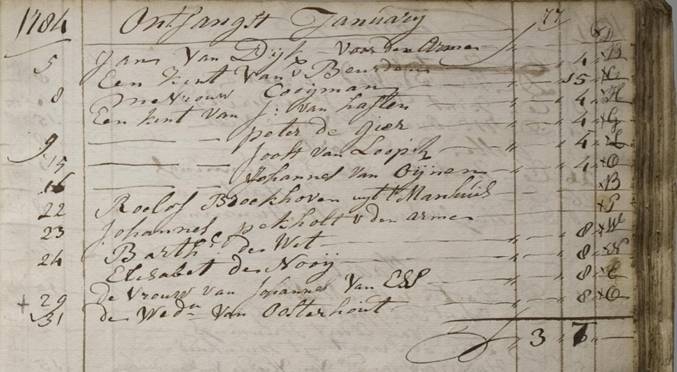 1784 Ontfangst January
5 Jans Van Dijk voor den Armen 4 B
Een kint Van V Beurden 15
8 Mevrouw Cooijman 4 H
Een kint van J: van haften 4 G
9 — — peter de Gier 4 L
15 — — Joost van Loopik 4 O
16 — — Johannes Van Oijnen B
22 Roelof Broekhoven uijt Manhuis P
23 Johannes pekholt v den armen 8 W
24 Barth: de Wit 8 N
Elisabet de Nooij 8 E
+ 29 de Vrouw van Johannes Van ESS 8 O
31 de Wedn Van Oosterhout
3 7